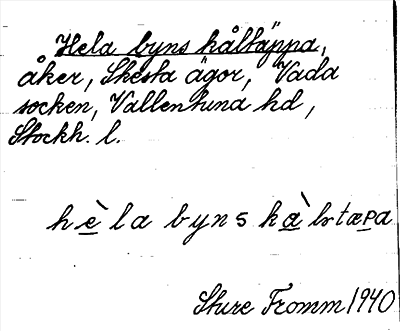 Hela byns kåltäppa,
åker, Skesta ägor, Vada
socken, Vallentuna hd,
Stockh. l.
hè la byns kàl tæpa
Sture Fromm 1940